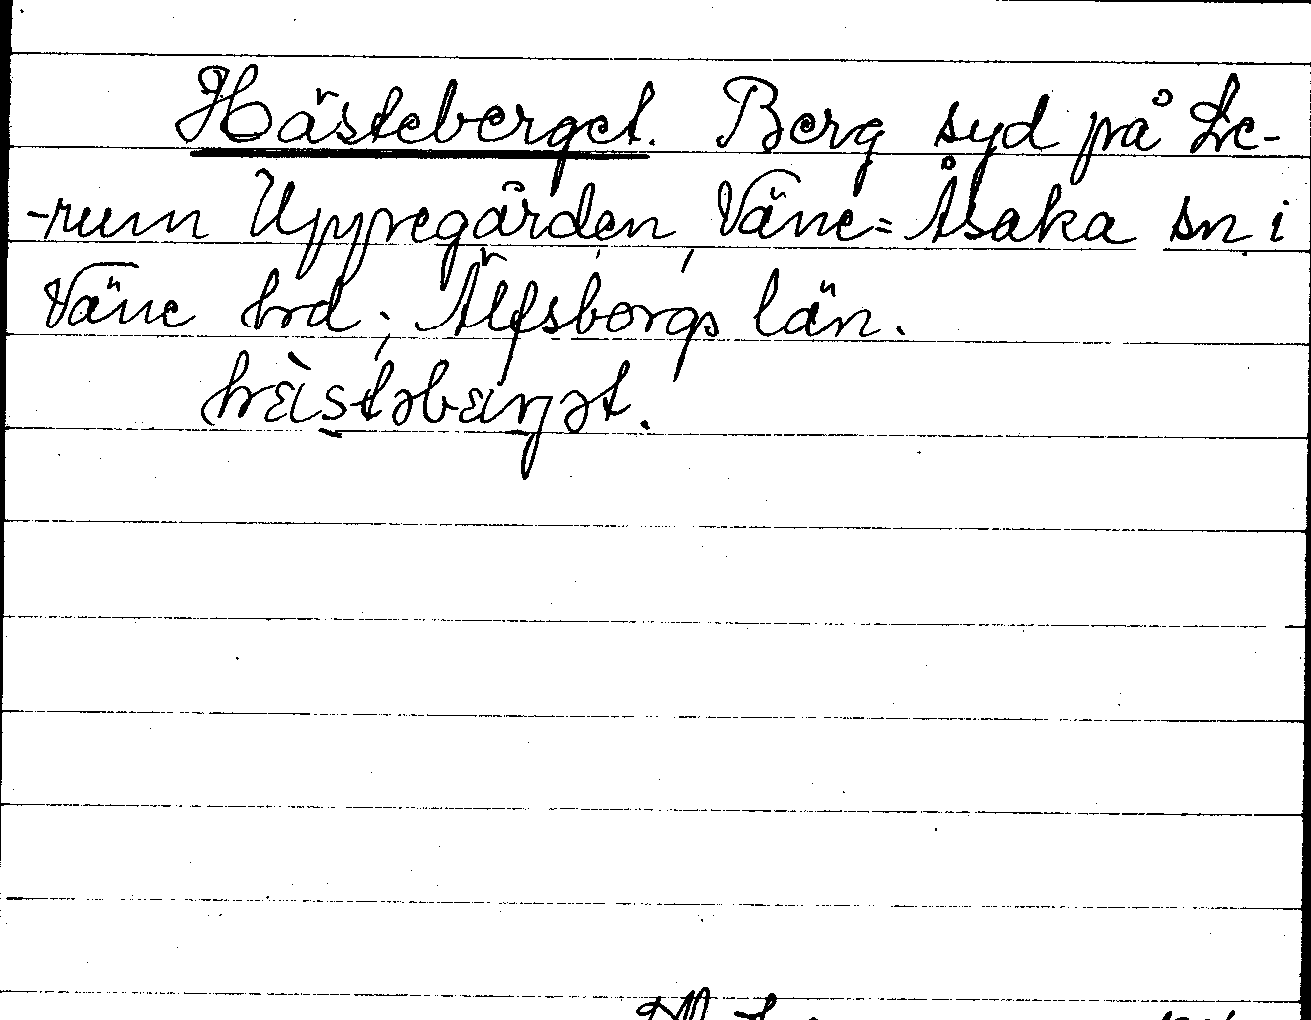 Hästeberget. Berg syd på Le-
-rum Uppregården, Väne=Åsaka sn i
Väne hrd; Älfsborgs län.
hɛ̀stəbæŋət.